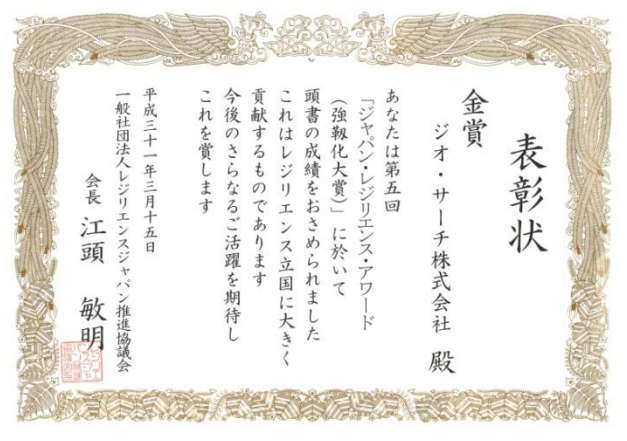 表彰状
金賞
ジオ・サーチ株式会社 殿
あなたは第五回
「ジャパン・レジリエンス・アワード
（強靱化大賞）」に於いて
頭書の成績をおさめられました
これはレジリエンス立国に大きく
貢献するものであります
今後のさらなるご活躍を期待し
これを賞します
平成三十一年三月十五日
一般社団法人レジリエンスジャパン推進協議会
会長 江頭 敏明